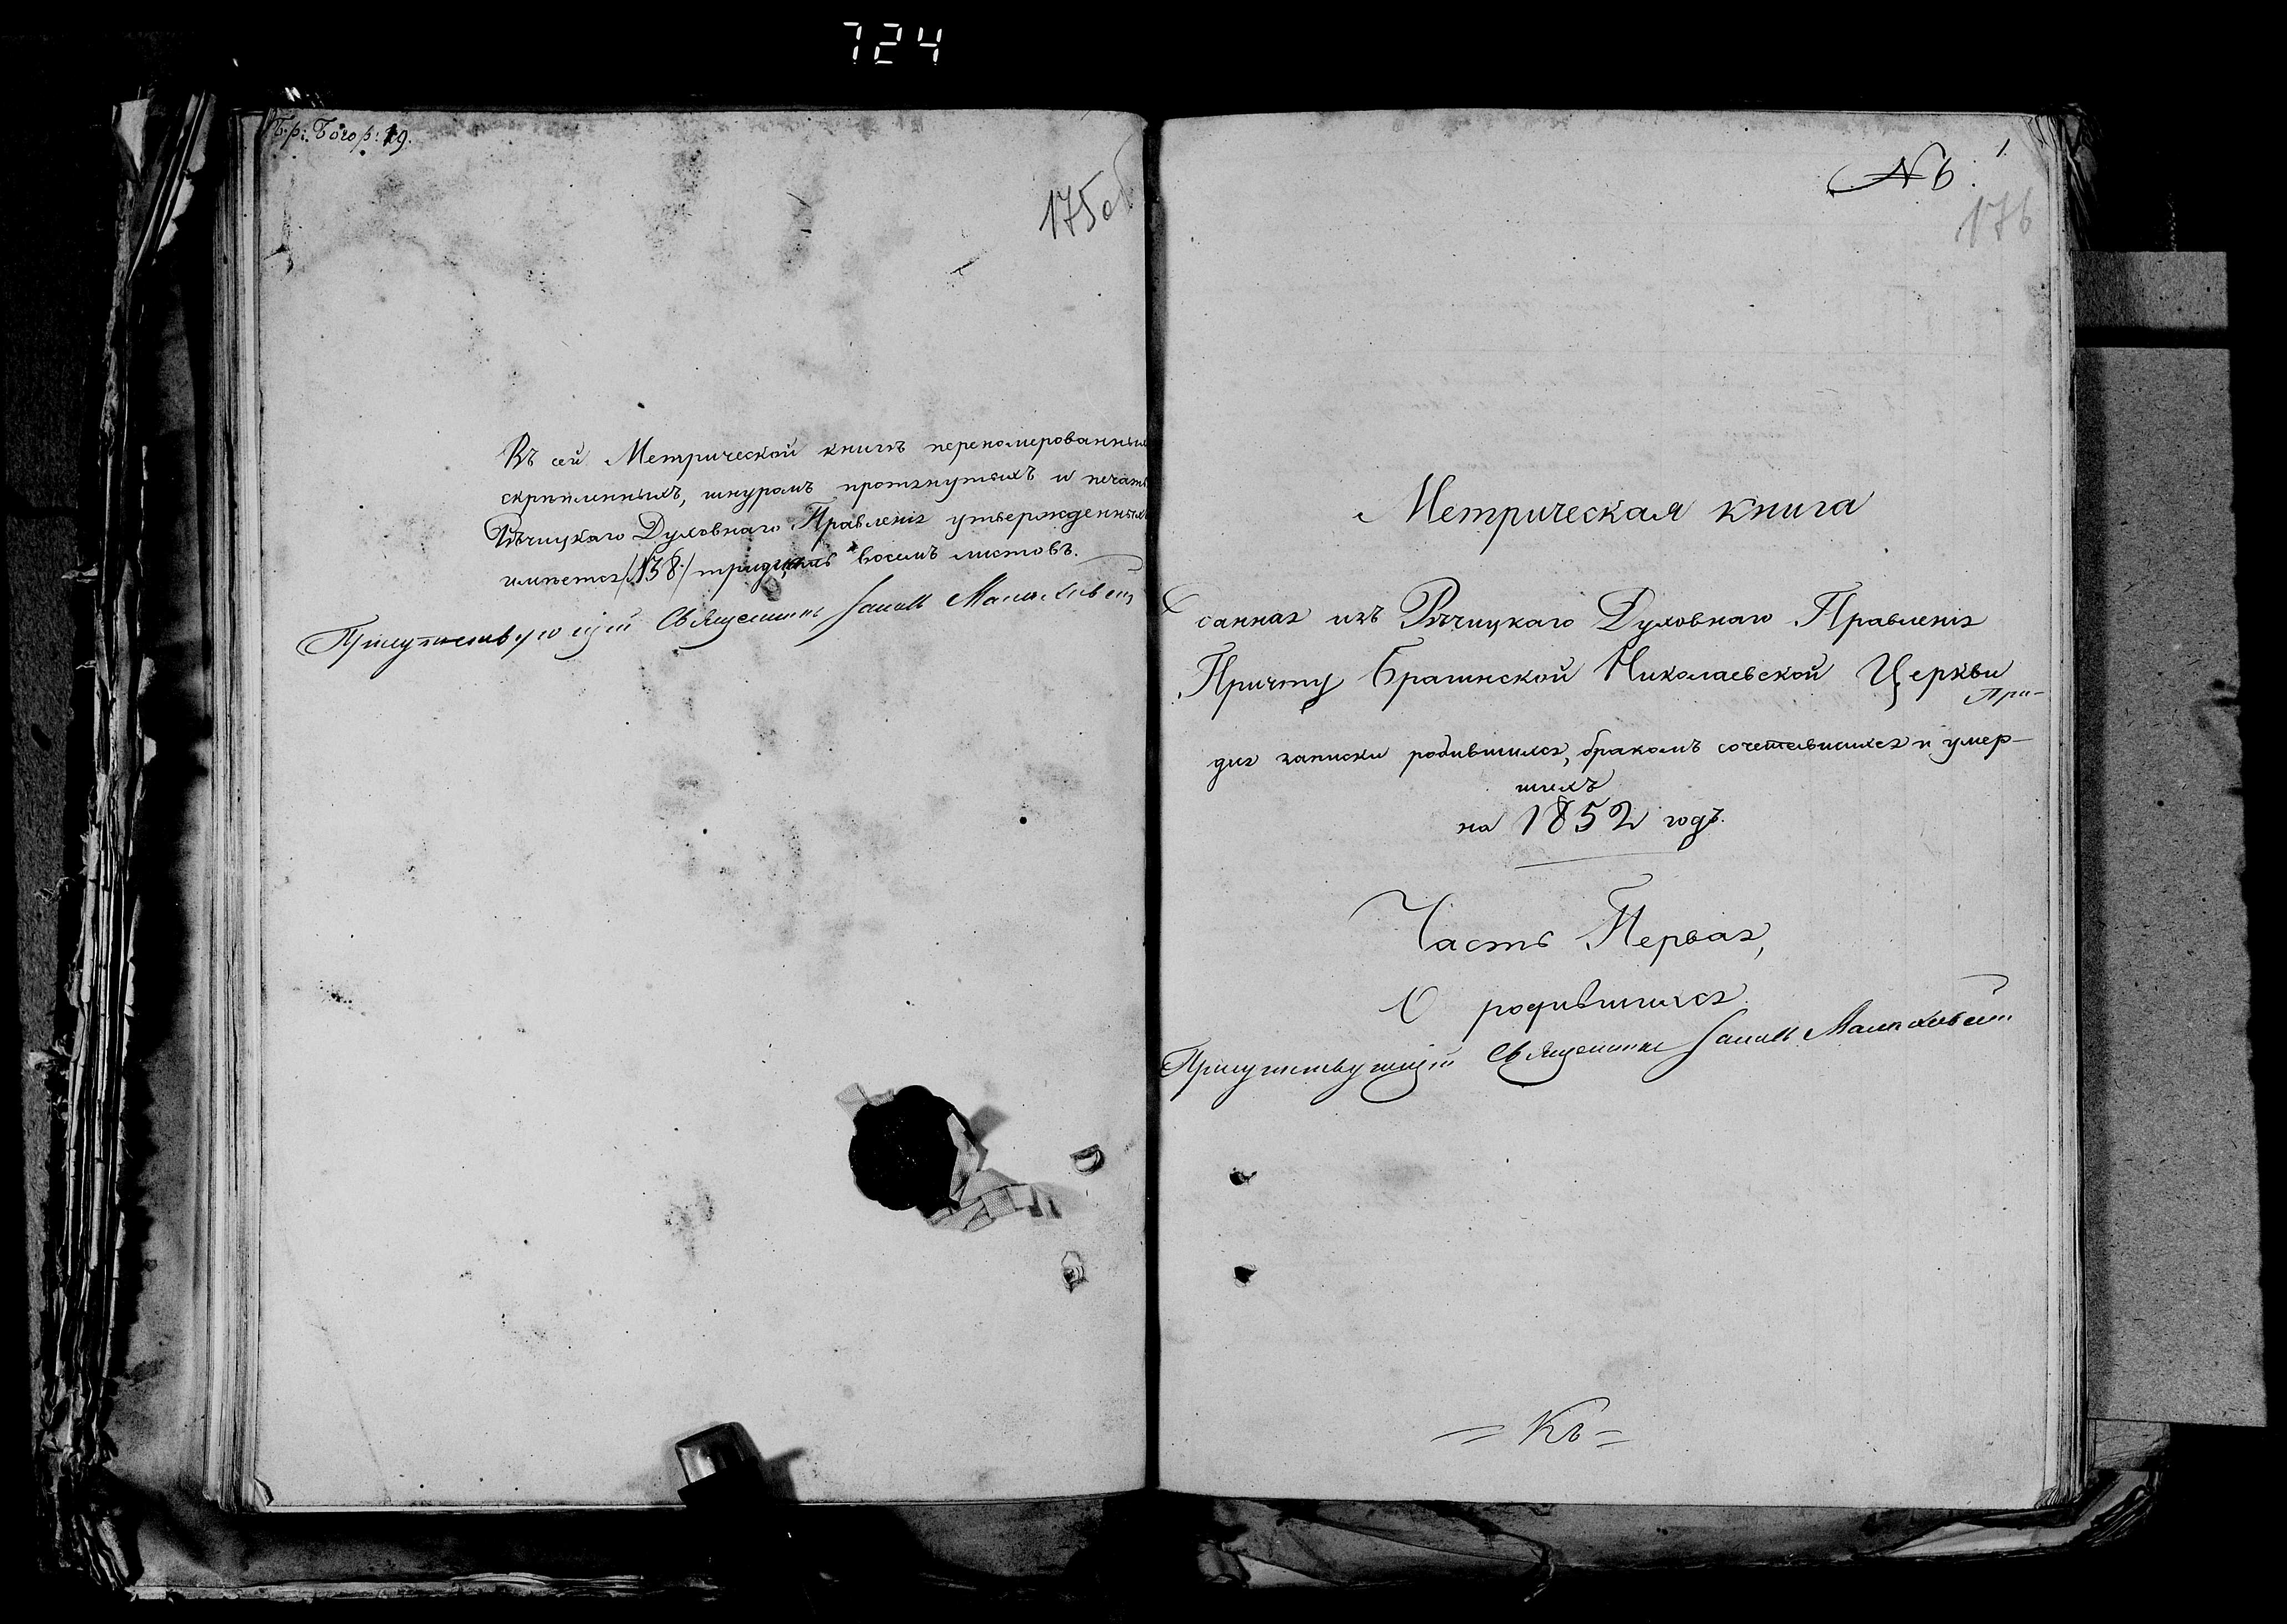 724
Бр: Богор: 19.
175 об
Въ сей Метрической книгѣ перекомерованныхъ
скрѣпленныхъ, шнуромъ протянутыхъ и печатью
Рѣчицкаго Духовнаго Правленія утвержденныхъ
имѣется /:38:/ тридцать восемь листовъ.
Присутствующій Священникъ
1.
№ 6.
176
Метрическая книга
Данная изъ Рѣчицкаго Духовнаго Правленія
Причту Брагинской Николаевской Церкви
При-
для записки родившихся, бракомъ сочетавшихся и умер-
шихъ
на 1852 годъ.
Часть Первая,
О родившихся.
Присутствующій Священникъ
= Къ =